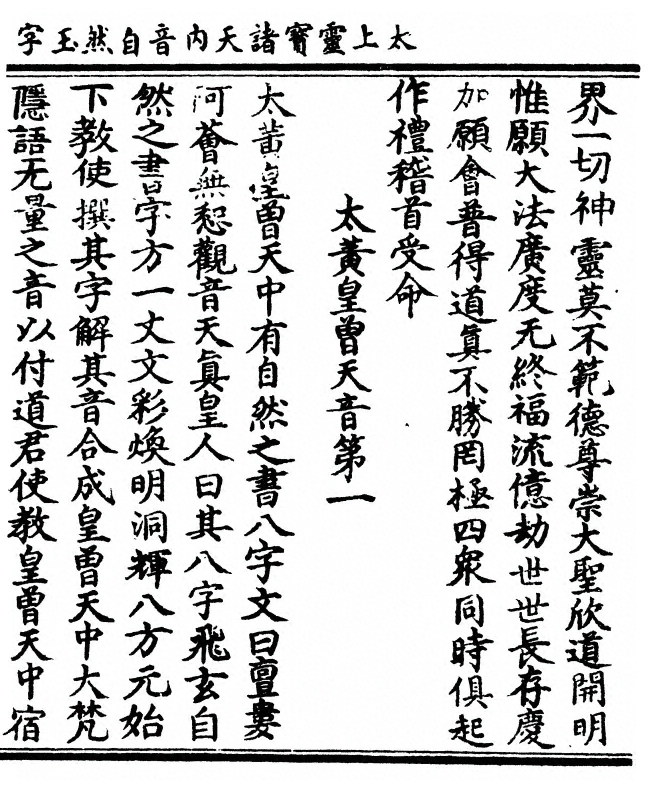 太上靈寳諸天内音自然玉字
界一切神靈莫不範德尊崇大聖欣道開明
惟願大法廣度无終福流億劫世世長存慶
加願會普得道真不勝罔極四衆同時俱起
作禮稽首受命
太黄皇曾天音第一
太黄皇曾天中有自然之書八字文曰亶婁
阿薈無惒觀音天真皇人曰其八字飛玄自
然之書字方一丈文彩焕明洞輝八方元始
下教使撰其字解其音合成皇曾天中大梵
隱語无量之音以付道君使教皇曾天中宿